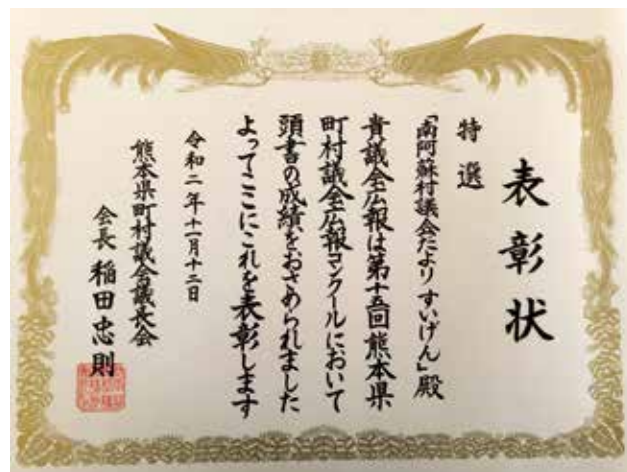 表彰状
特選
「南阿蘇村議会だより すいげん」殿
貴議会広報は第十五回熊本県
町村議会広報コンクールにおいて
頭書の成績をおさめられました
よってここにこれを表彰します
令和二年十一月十二日
熊本県町村議会議長会
会長 稲田忠則